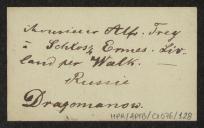 Monsieur Alf. Frey
à Schloss Ermes. Liv-
land per Walk. —
Russie
Dragomanow.
MPR/APMB/CXO76/128